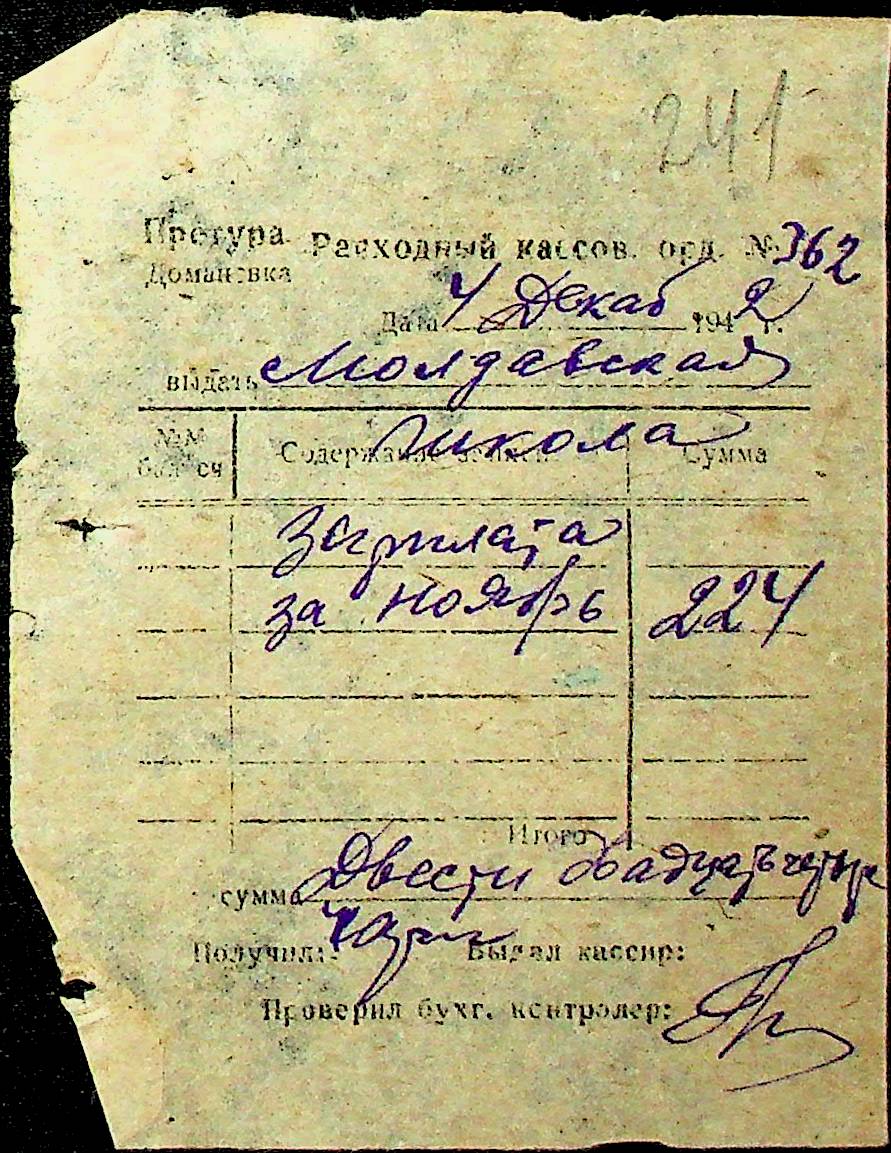 241
Претура Расходный кассов. орд. № 362
Домановка
Дата 4 Декаб 1942 г.
выдать Молдавская
школа
№№ бал сч Содержание записи Сумма
Зарплата
за ноябрь 224
Итого
сумма Двести двадцать четыре
Получил: Выдал кассир:
Проверил бухг. контролер: